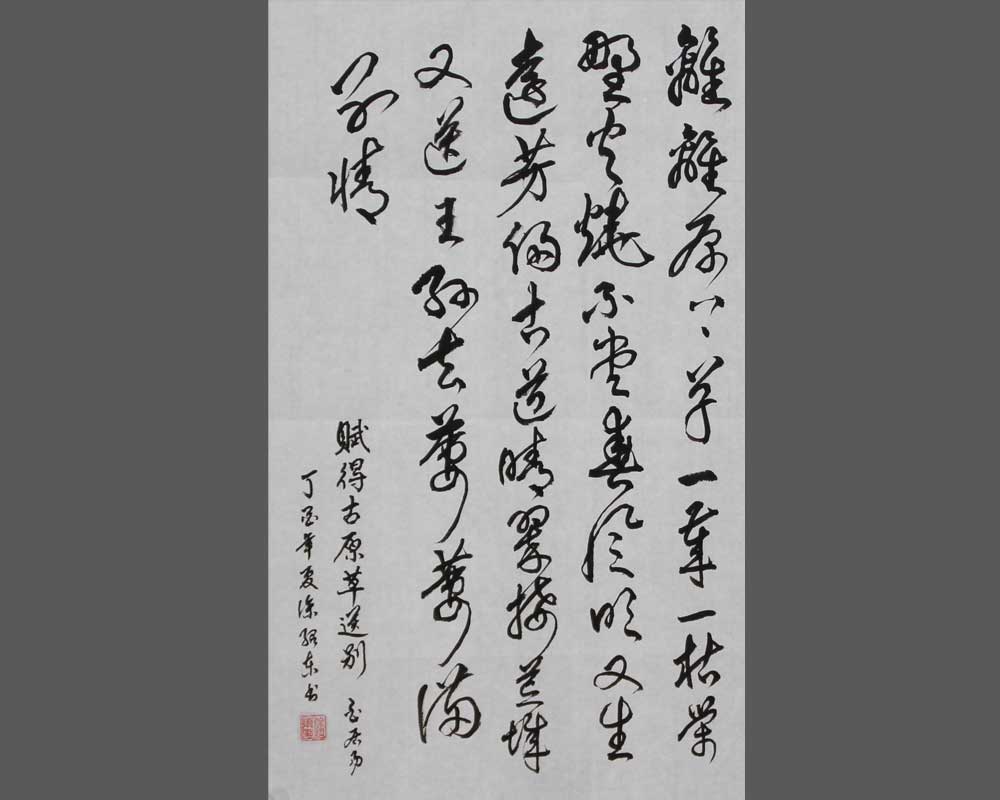 離離原上草一年一枯榮
野火燒不盡春風吹又生
遠芳侵古道晴翠接荒城
又送王孫去萋萋滿
別情
賦得古原草送別 白居易
丁酉年夏徐紹東書